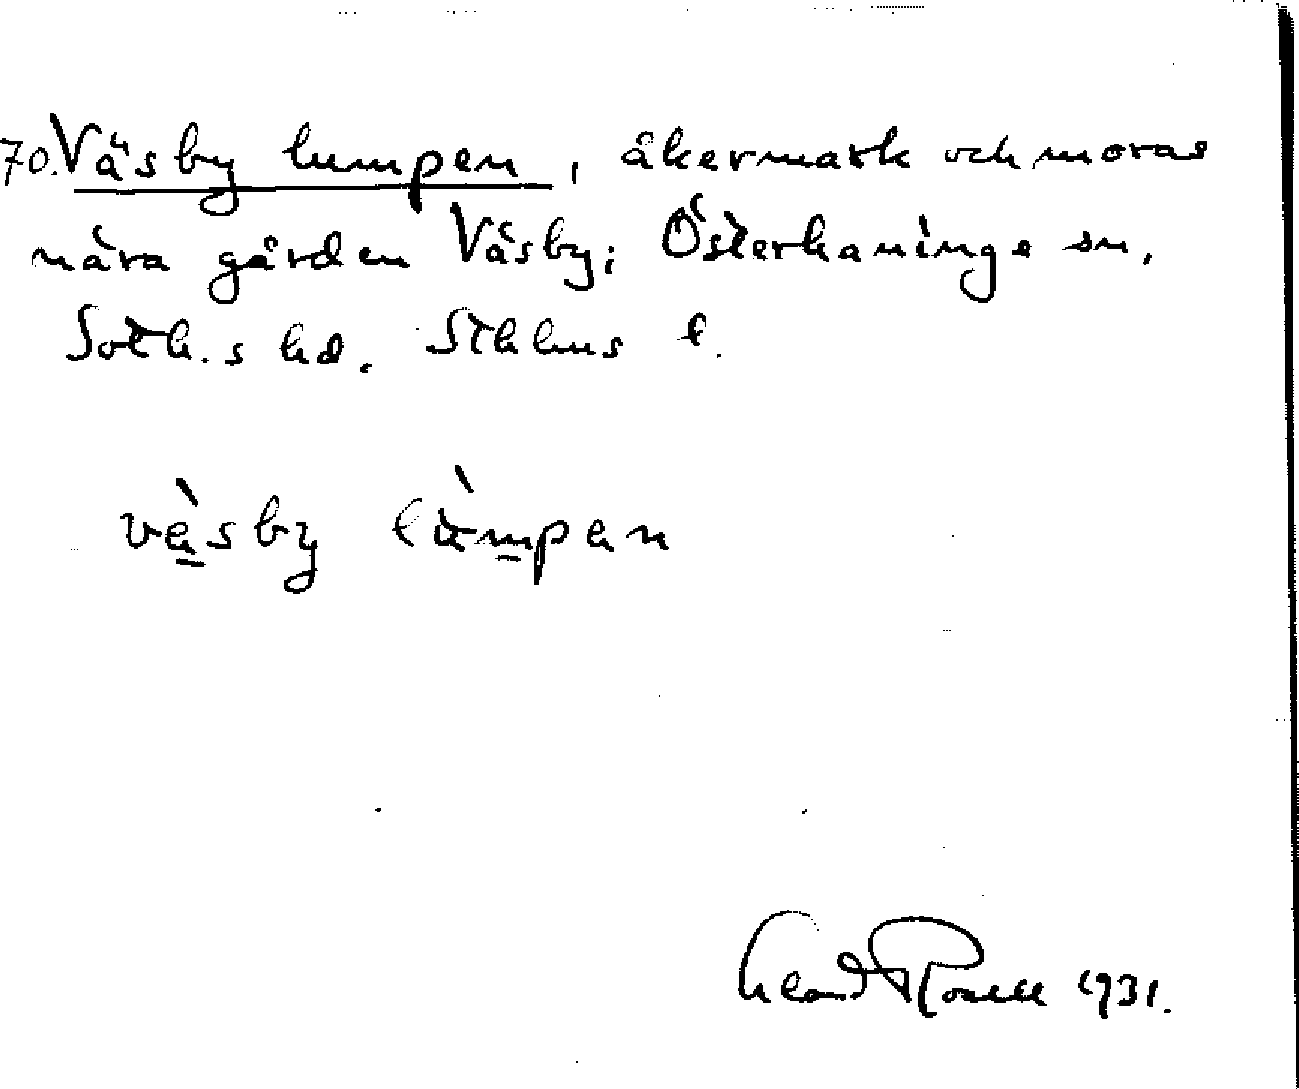 70. Väsby lumpen, åkermark och moras
nära gården Väsby; Österhaninge sn,
Soth.s hd. Sthlms l.
väsby lumpen
1931.